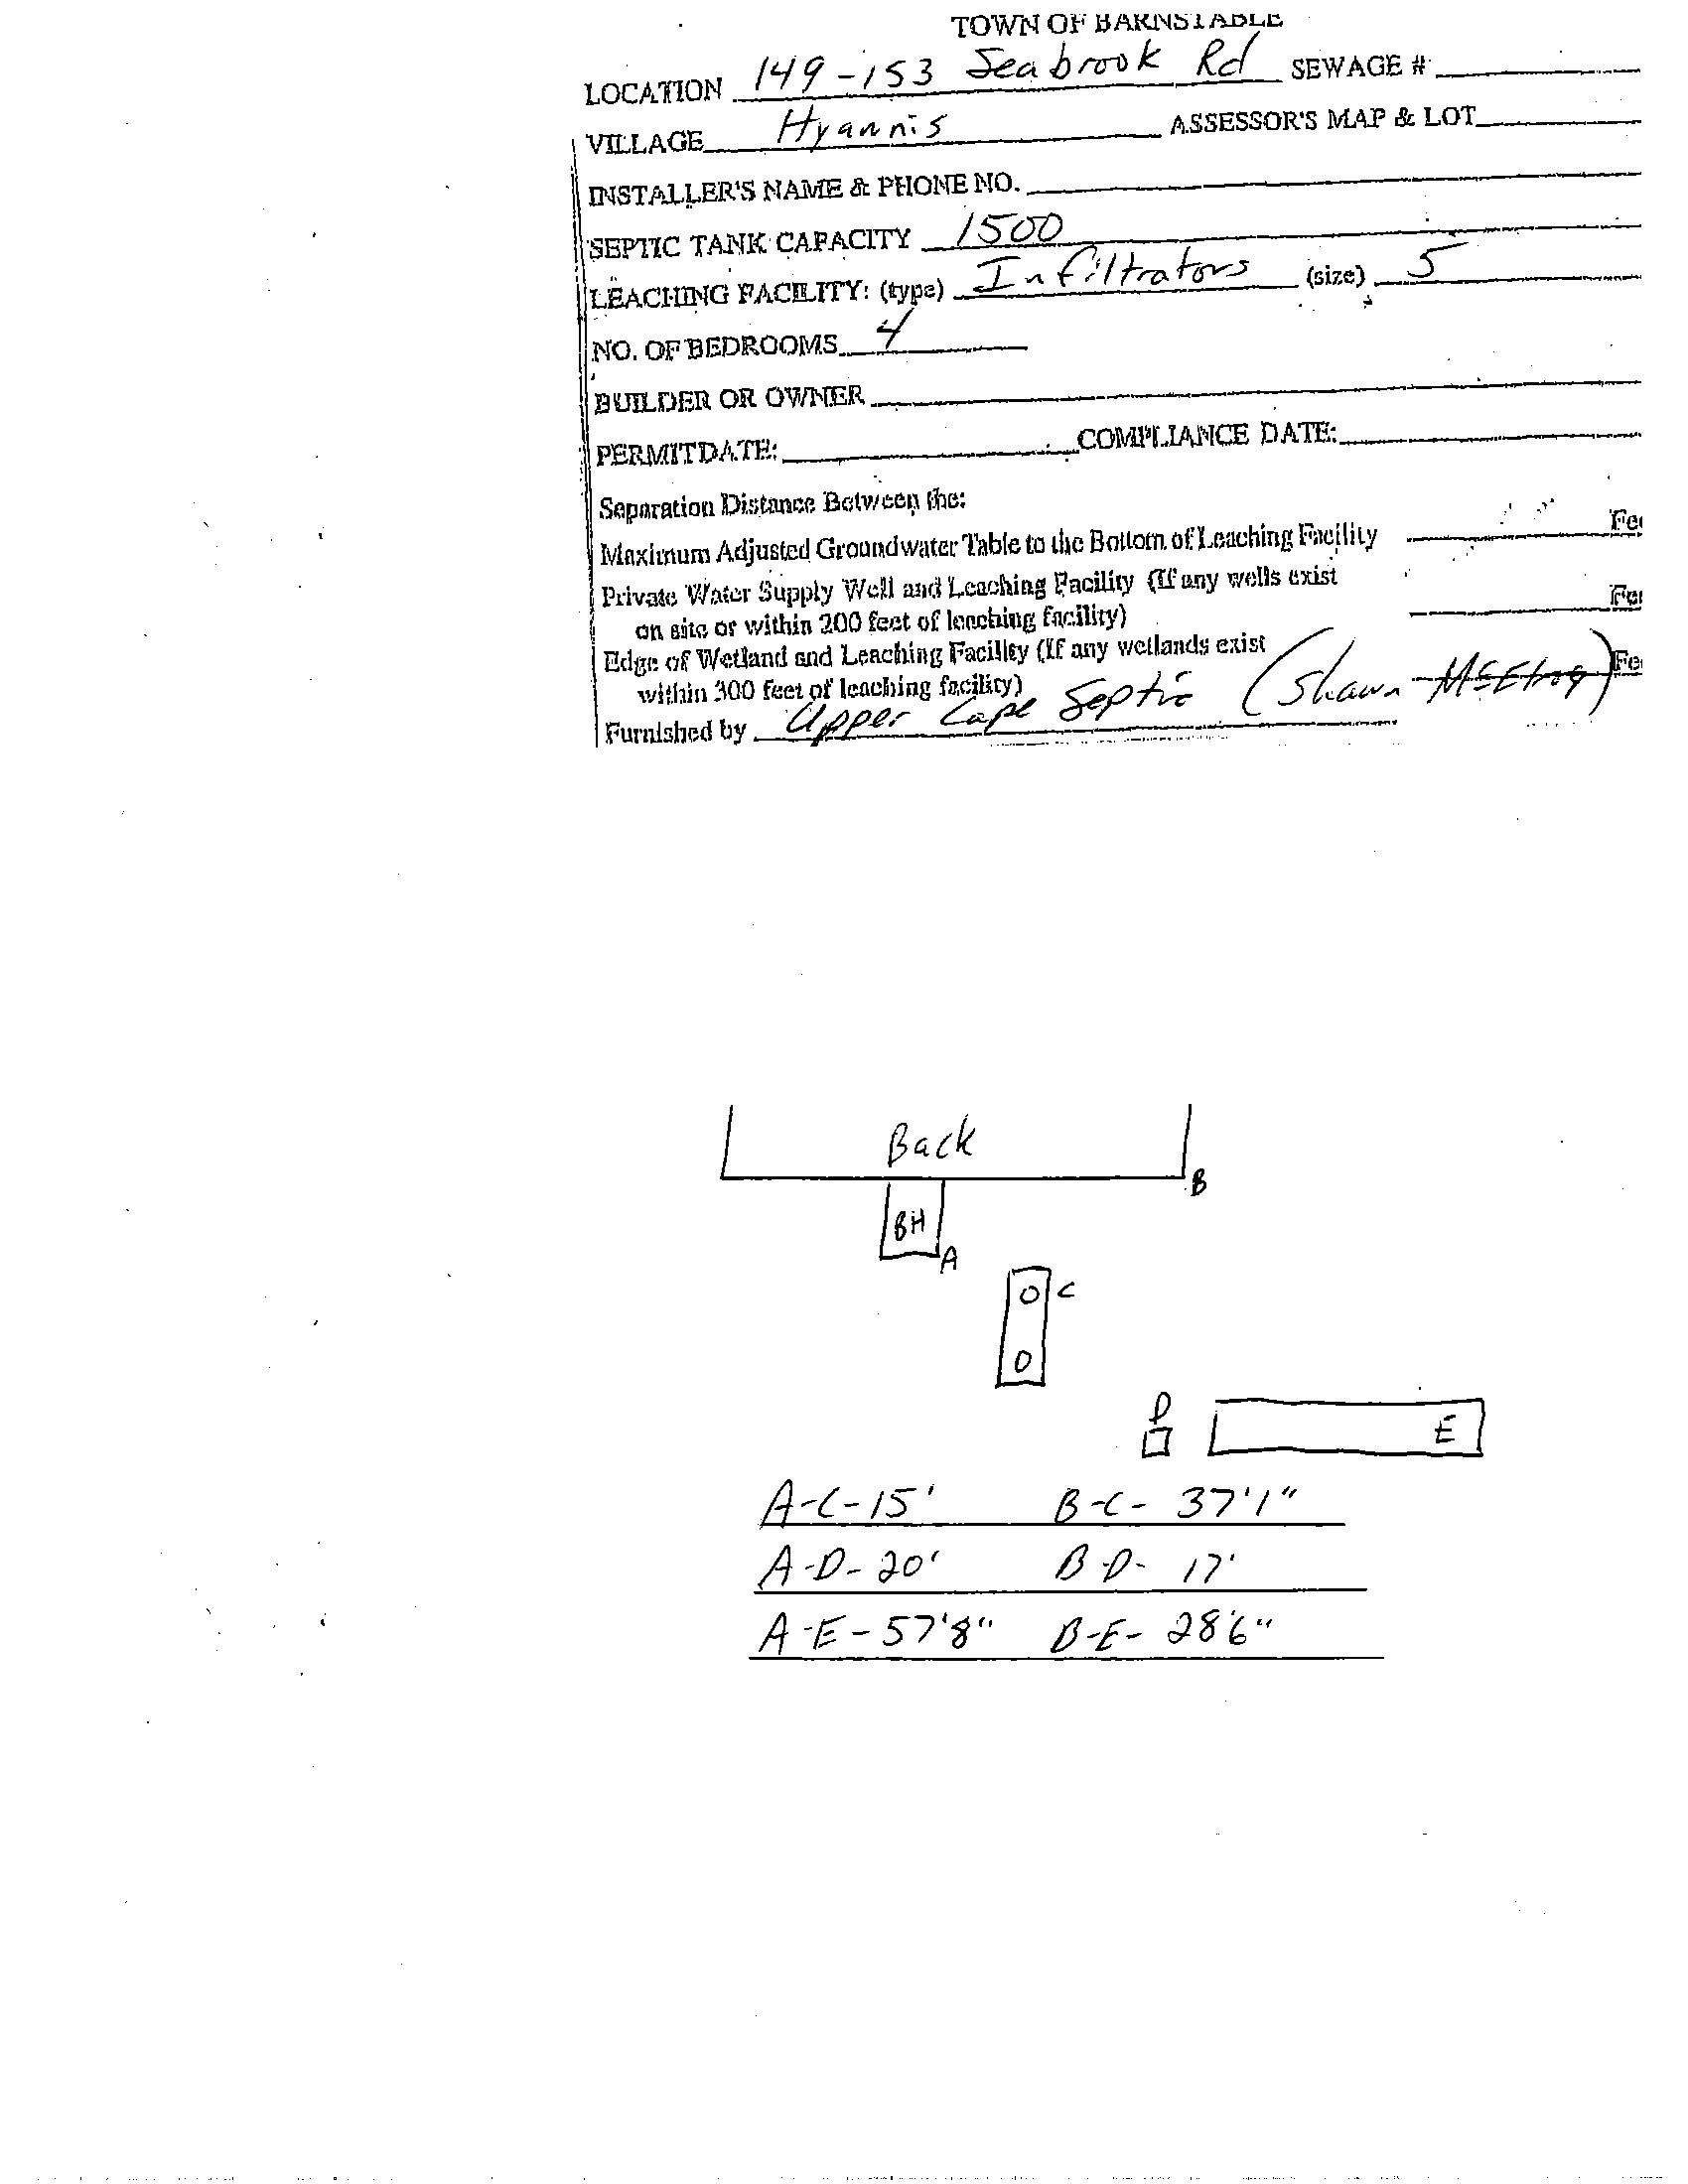 TOWN OF BARNSTABLE
LOCATION 149-153 Seabrook Rd SEWAGE #
VILLAGE Hyannis ASSESSOR'S MAP & LOT
INSTALLER'S NAME & PHONE NO.
SEPTIC TANK CAPACITY 1500
LEACHING FACILITY: (type) Infiltrators (size) 5
NO. OF BEDROOMS 4
BUILDER OR OWNER
PERMITDATE: COMPLIANCE DATE:
Separation Distance Between the:
Maximum Adjusted Groundwater Table to the Bottom of Leaching Facility Fee
Private Water Supply Well and Leaching Facility (If any wells exist
on site or within 200 feet of leaching facility) Fee
Edge of Wetland and Leaching Facility (If any wetlands exist
within 300 feet of leaching facility) Fee
Furnished by Upper Cape Septic (Shawn McElroy)
Back
B
BH
A
O C
O
D
E
A-C-15' B-C- 37'1"
A-D-20' B-D- 17'
A-E-57'8" B-E- 28'6"